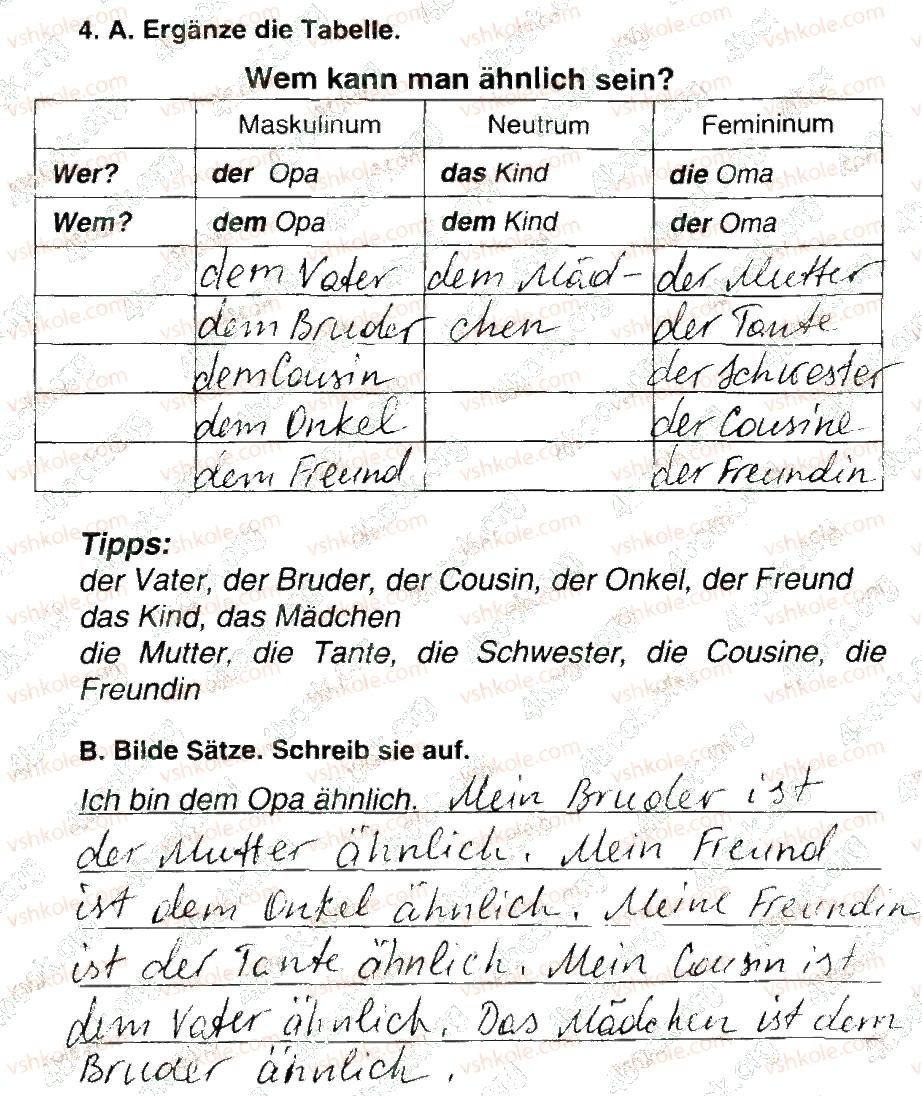 4. A. Ergänze die Tabelle.
Wem kann man ähnlich sein?
Maskulinum Neutrum Femininum
Wer? der Opa das Kind die Oma
Wem? dem Opa dem Kind der Oma
dem Vater dem Mäd- der Mutter
dem Bruder chen der Tante
dem Cousin der Schwester
dem Onkel der Cousine
dem Freund der Freundin
Tipps:
der Vater, der Bruder, der Cousin, der Onkel, der Freund
das Kind, das Mädchen
die Mutter, die Tante, die Schwester, die Cousine, die
Freundin
B. Bilde Sätze. Schreib sie auf.
Ich bin dem Opa ähnlich. Mein Bruder ist
der Mutter ähnlich. Mein Freund
ist dem Onkel ähnlich. Meine Freundin
ist der Tante ähnlich. Mein Cousin ist
dem Vater ähnlich. Das Mädchen ist dem
Bruder ähnlich.